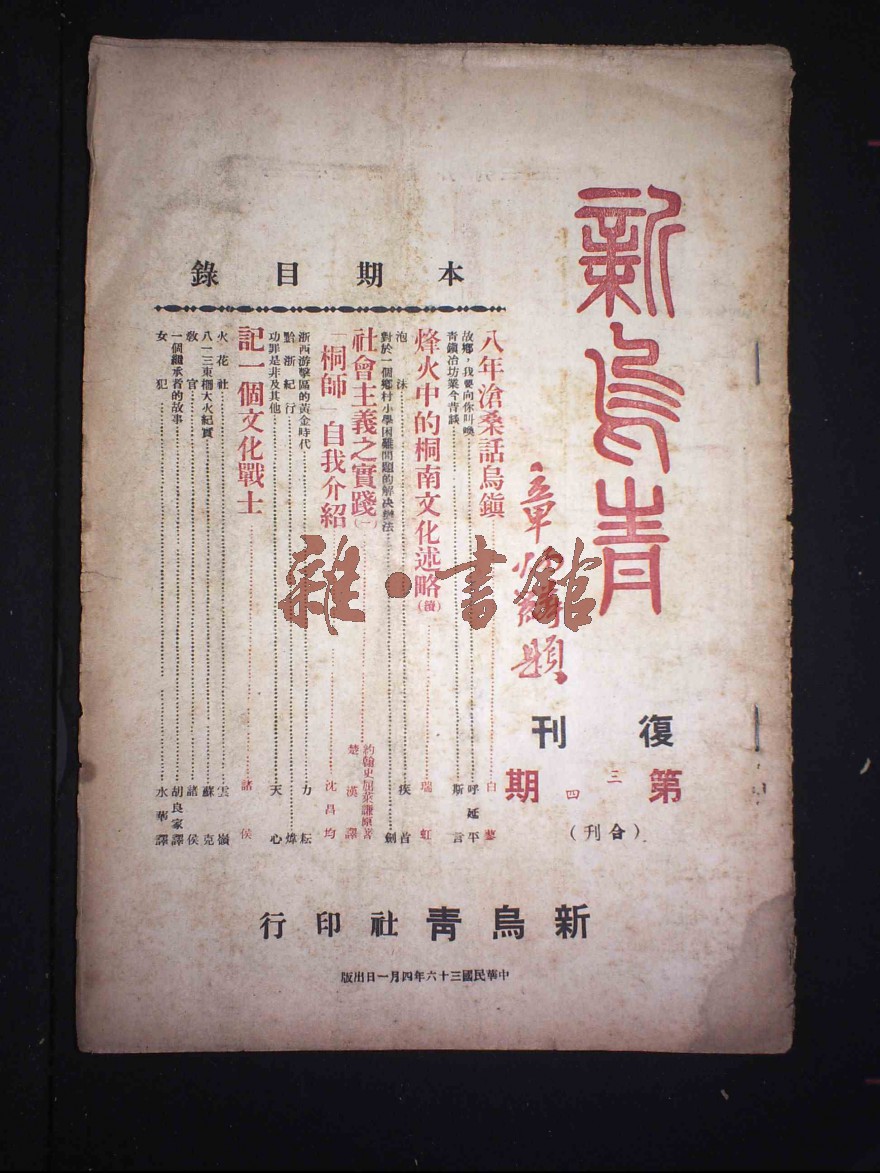 新烏青
章
題
復刊
第三四期
（合刊）
本期目錄
八年滄桑話烏鎭 白蓼
故鄉，我要向你叫喚 呼延平
青鎭冶坊業今昔談 斯言
烽火中的桐南文化述略（續） 瑞虹
泡沫 疾首
對於一個鄉村小學困難問題的解決辦法 劍
社會主義之實踐（一） 約翰史屈萊謙原著
楚漢譯
「桐師」自我介紹 沈昌均
浙西游擊區的黃金時代 力耘
黔浙紀行 煒
功罪是非及其他 天心
記一個文化戰士 諸侯
火花社 雲嶺
八一三東柵大火紀實 蘇克
敎官 諸侯
一個繼承者的故事 胡良家譯
女犯 水華譯
新烏靑社印行
中華民國三十六年四月一日出版
雜·書館